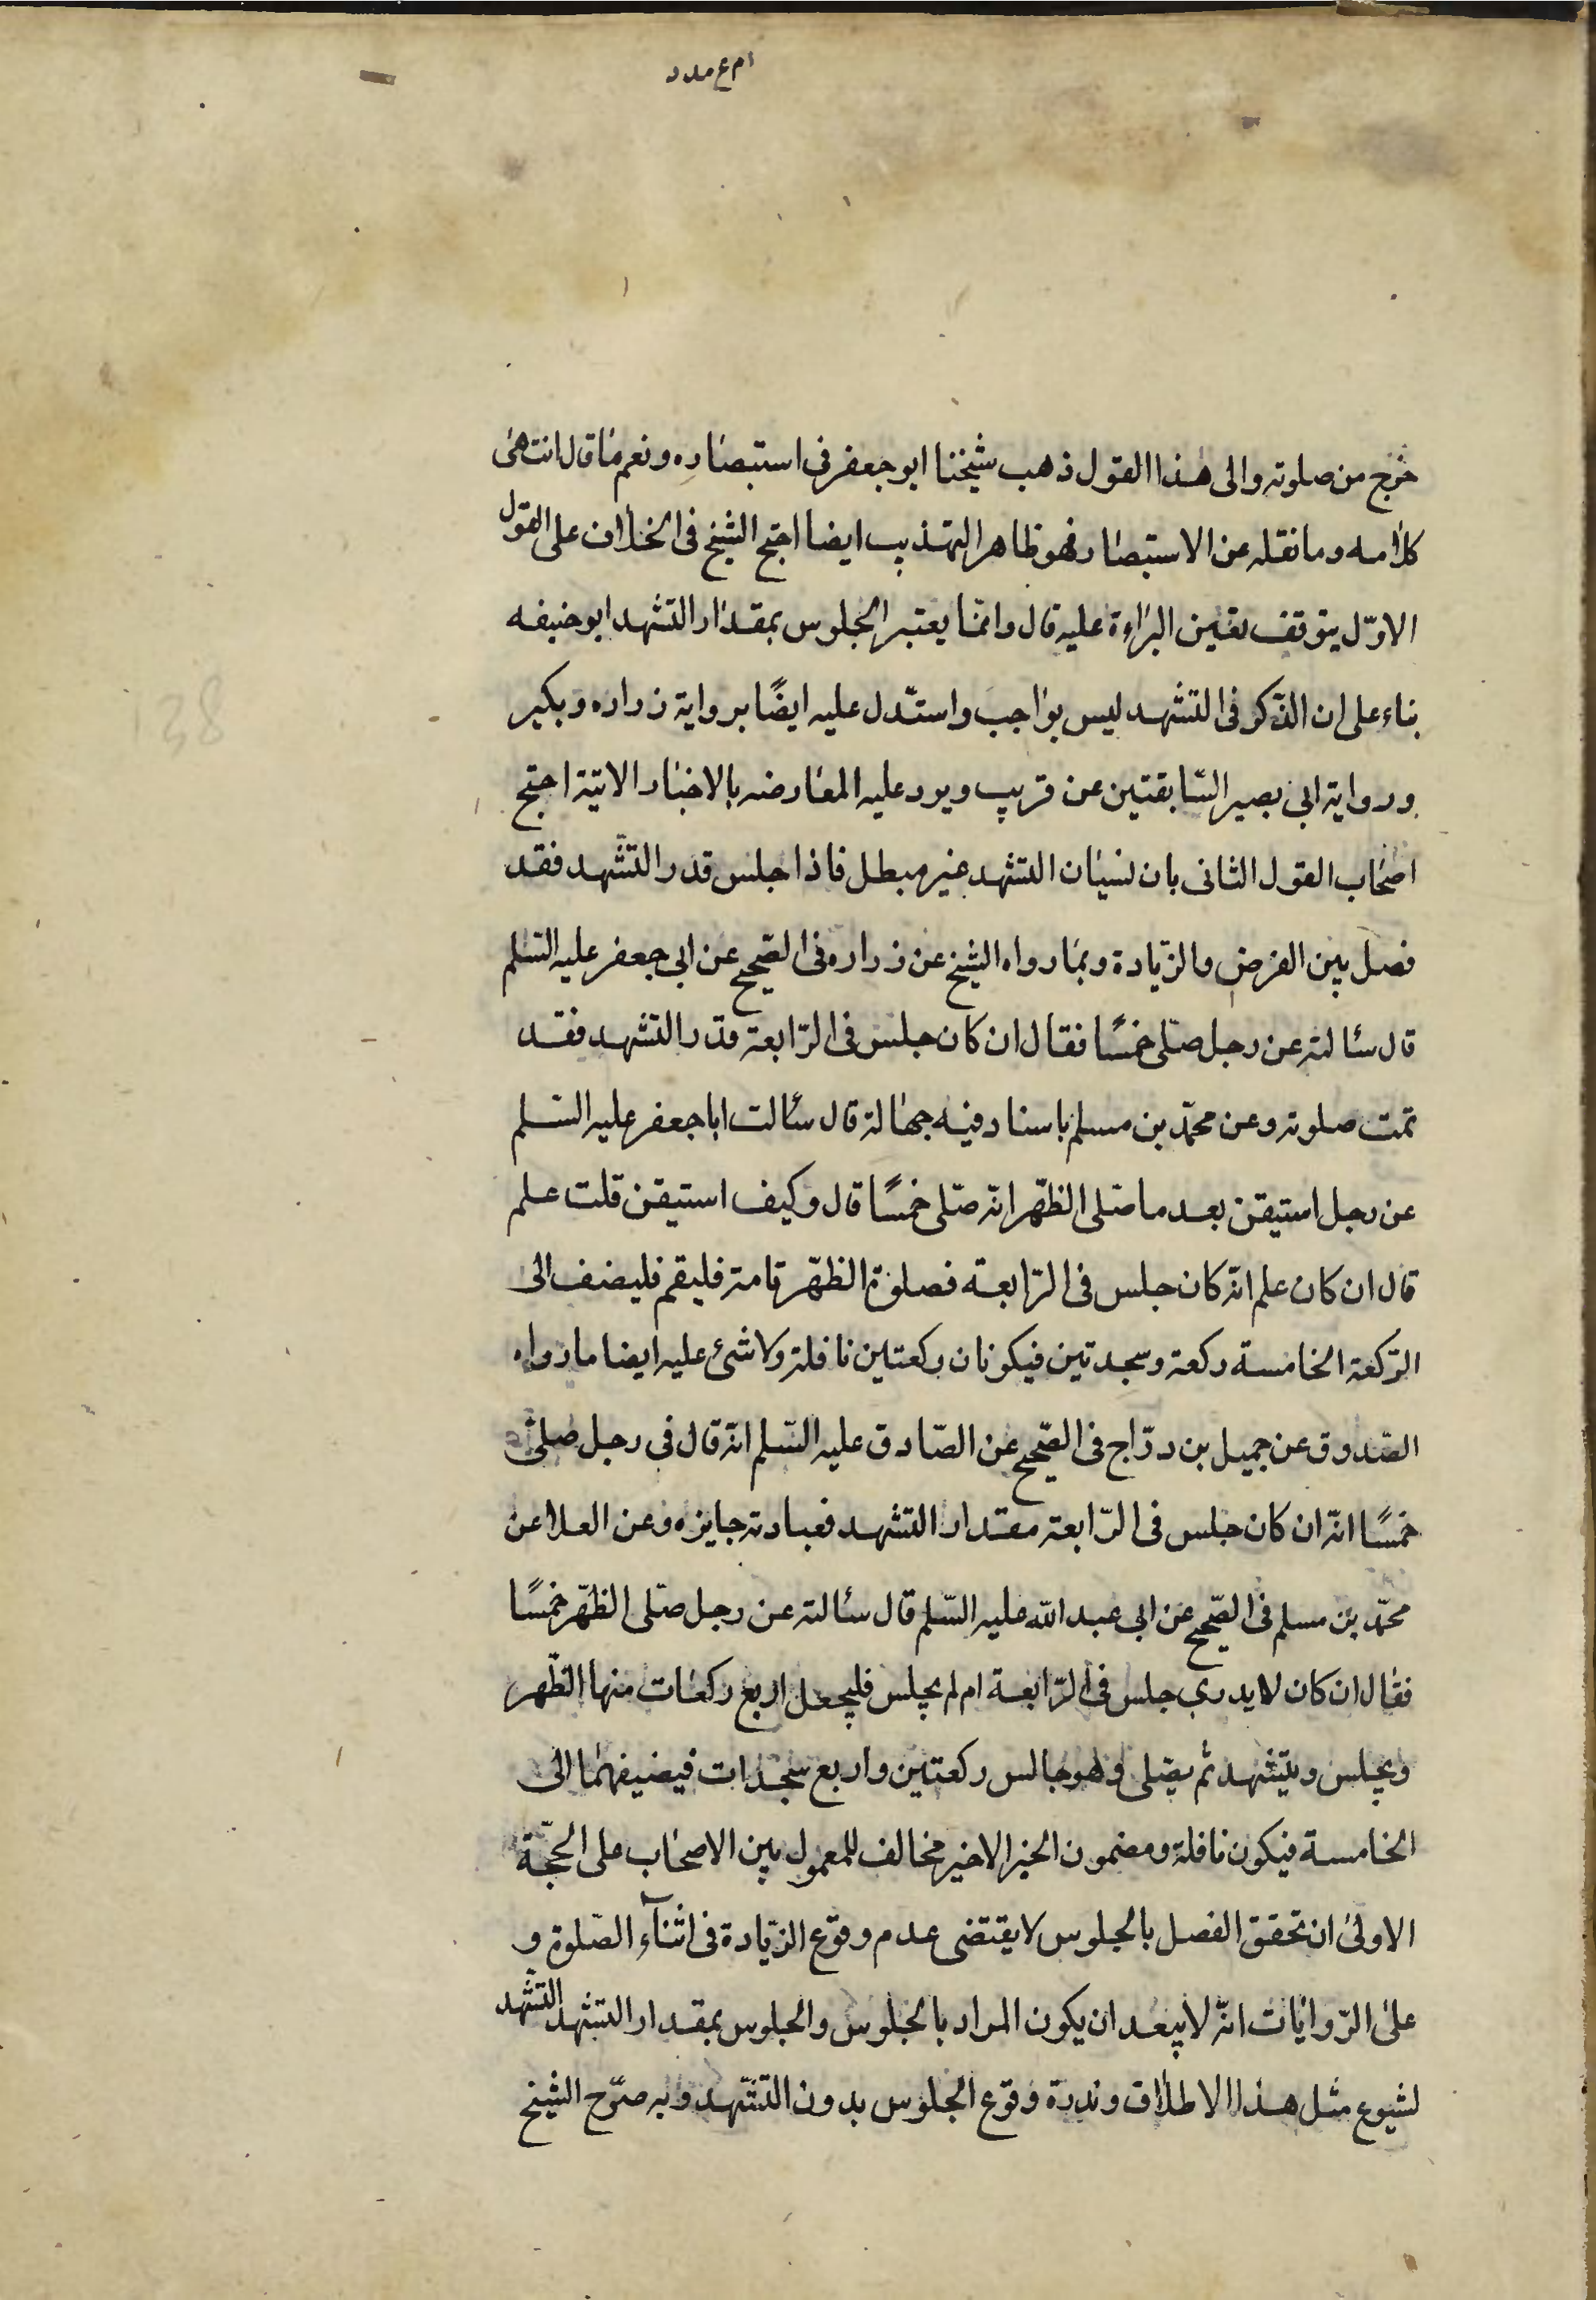 خرج من صلوته والى هذا القول ذهب شيخنا ابو جعفر فى استبصاره ونعم ما قال انتهى
كلامه وما نقله عن الاستبصار فهو ظاهر التهذيب ايضا احتج الشيخ فى الخلاف على القول
الاوّل يتوقف يقين البراءة عليه قال وانما يعتبر الجلوس بمقدار التشهد ابو حنيفه
بناء على ان الذكر فى التشهد ليس بواجب واستدل عليه ايضًا برواية زراره وبكير
ورواية ابى بصير السّابقتين عن قريب ويرد عليه المعارضه بالاخبار الاتية احتج
اصحاب القول الثانى بان نسيان التشهد غير مبطل فاذا جلس قدر التشهد فقد
فصل بين الفرض والزيادة وبما رواه الشيخ عن زراره فى الصّحيح عن ابى جعفر عليه السّلم
قال سئالته عن رجل صلّى خمسًا فقال ان كان جلس فى الرّابعة قدر التشهد فقد
تمت صلوته وعن محمّد بن مسلم باسناد فيه جهالة قال سئالت ابا جعفر عليه السّلم
عن رجل استيقن بعد ما صلّى الظّهر انّه صلّى خمسًا قال وكيف استيقن قلت علم
قال ان كان علم انّه كان جلس فى الرّابعة فصلوة الظّهر تامة فليقم فليضف الى
الرّكعة الخامسة ركعة وسجدتين فيكونان ركعتين نافلة ولا شئ عليه ايضا ما رواه
الصّدوق عن جميل بن درّاج فى الصّحيح عن الصّادق عليه السّلم انّه قال فى رجل صلّى
خمسًا انّه ان كان جلس فى الرّابعة مقدار التشهد فعبادته جايزه وعن العلا عن
محمّد بن مسلم فى الصّحيح عن ابى عبد الله عليه السّلم قال سئالته عن رجل صلّى الظّهر خمسًا
فقال ان كان لا يدرى جلس فى الرّابعة ام لم يجلس فليجعل اربع ركعات منها الظّهر
ويجلس ويتشهد ثم يصلى وهو جالس ركعتين واربع سجدات فيضيفهما الى
الخامسة فيكون نافلة ومضمون الخبر الاخير مخالف للمعمول بين الاصحاب على الحجّة
الاولى ان تحقق الفصل بالجلوس لا يقتضى عدم وقوع الزّيادة فى اثناء الصّلوة و
على الرّوايات انّه لا يبعد ان يكون المراد بالجلوس والجلوس بمقدار التشهد التشهد
لشيوع مثل هذا الاطلاق وندرة وقوع الجلوس بدون التشهد وبه صرّح الشيخ
138